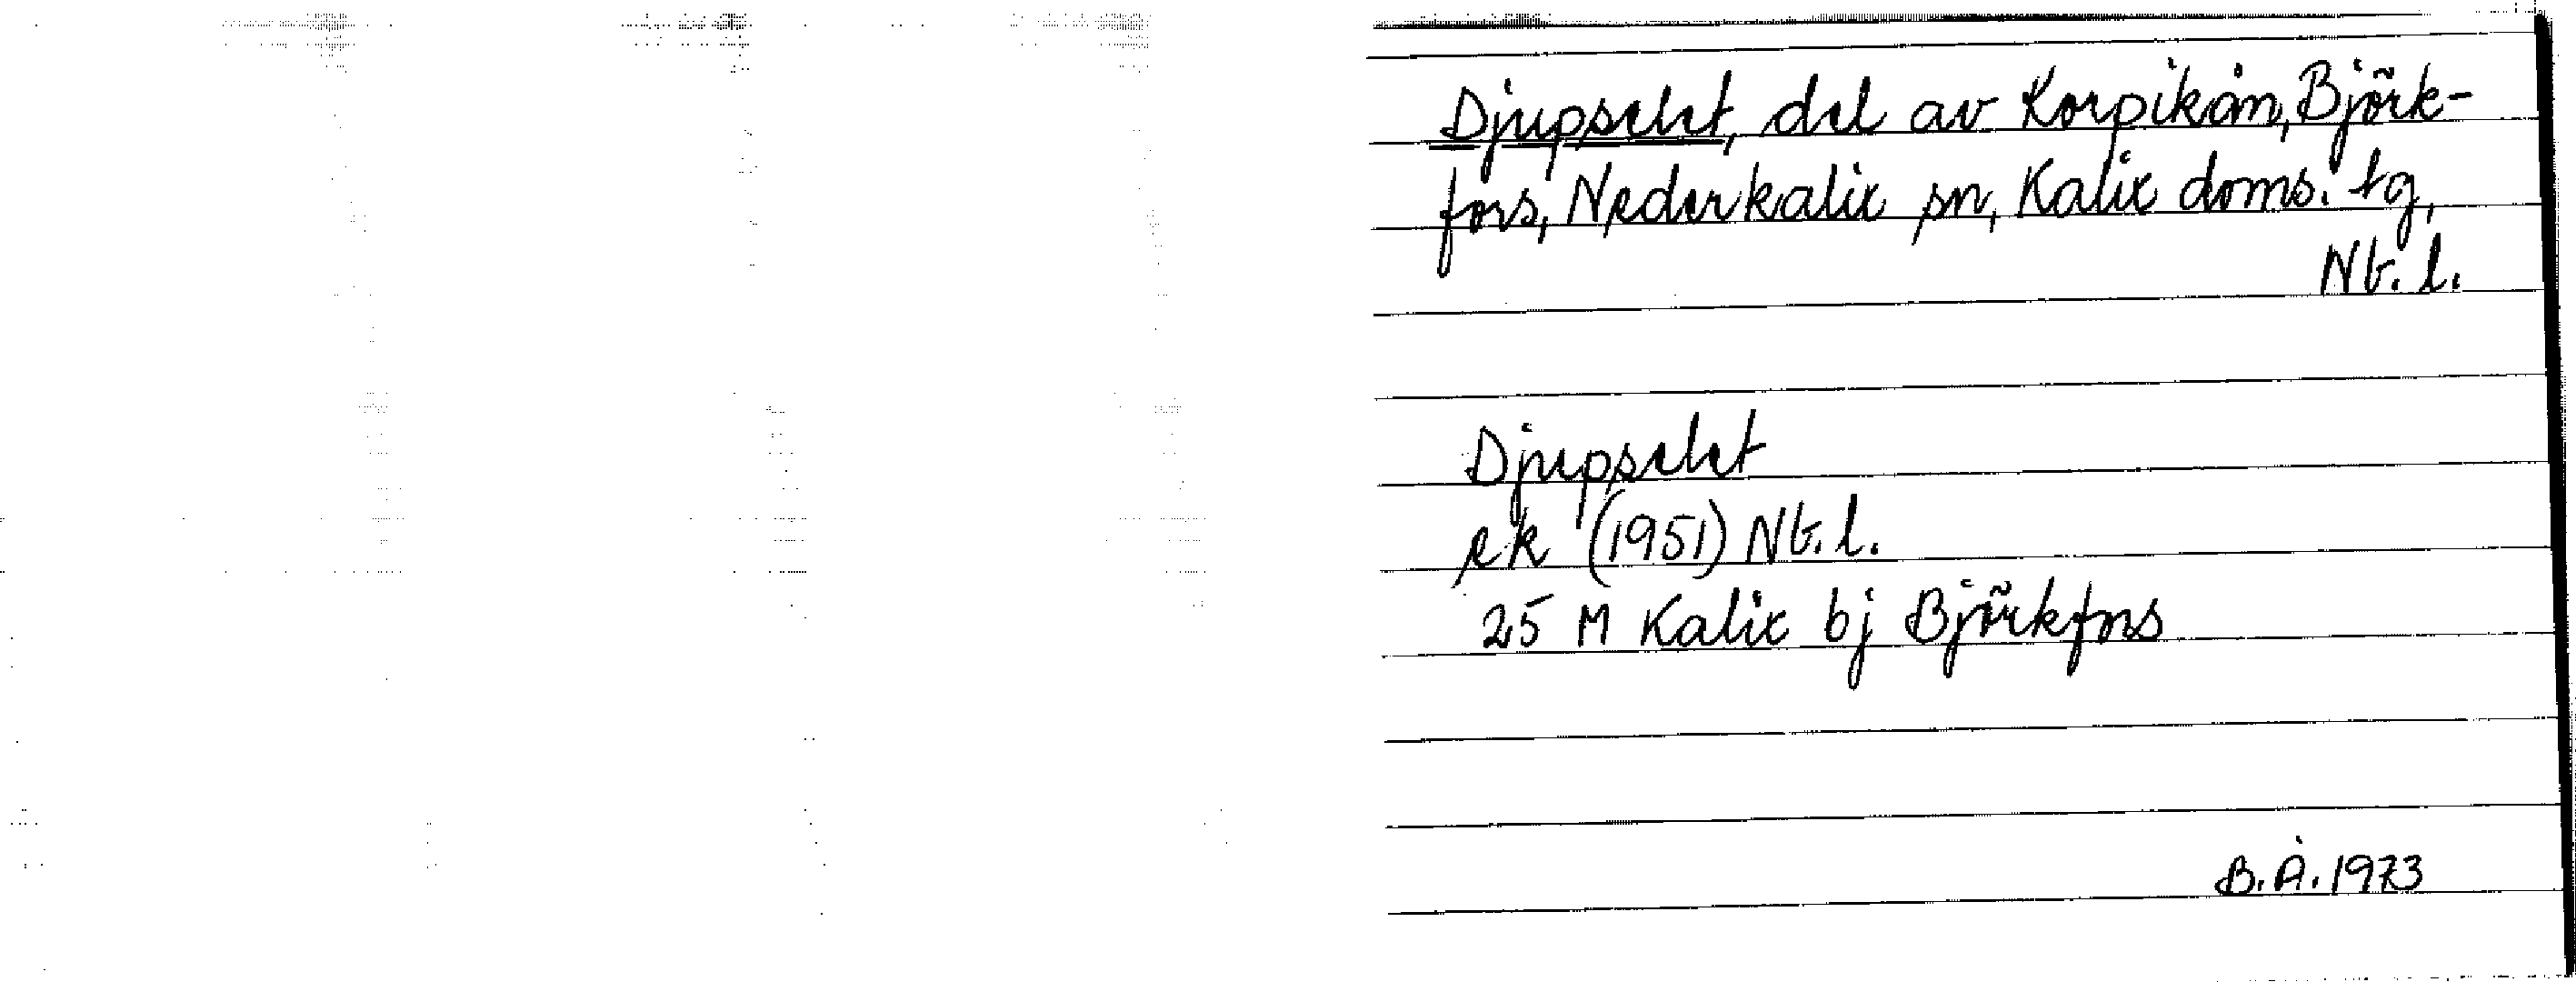 Djupselet, del av Korpikån, Björk-
fors, Nederkalix sn, Kalix doms. tg,
Nb. l.
Djupselet
ek (1951) Nb. l.
25 M Kalix bj Björkfors
B. Å. 1973